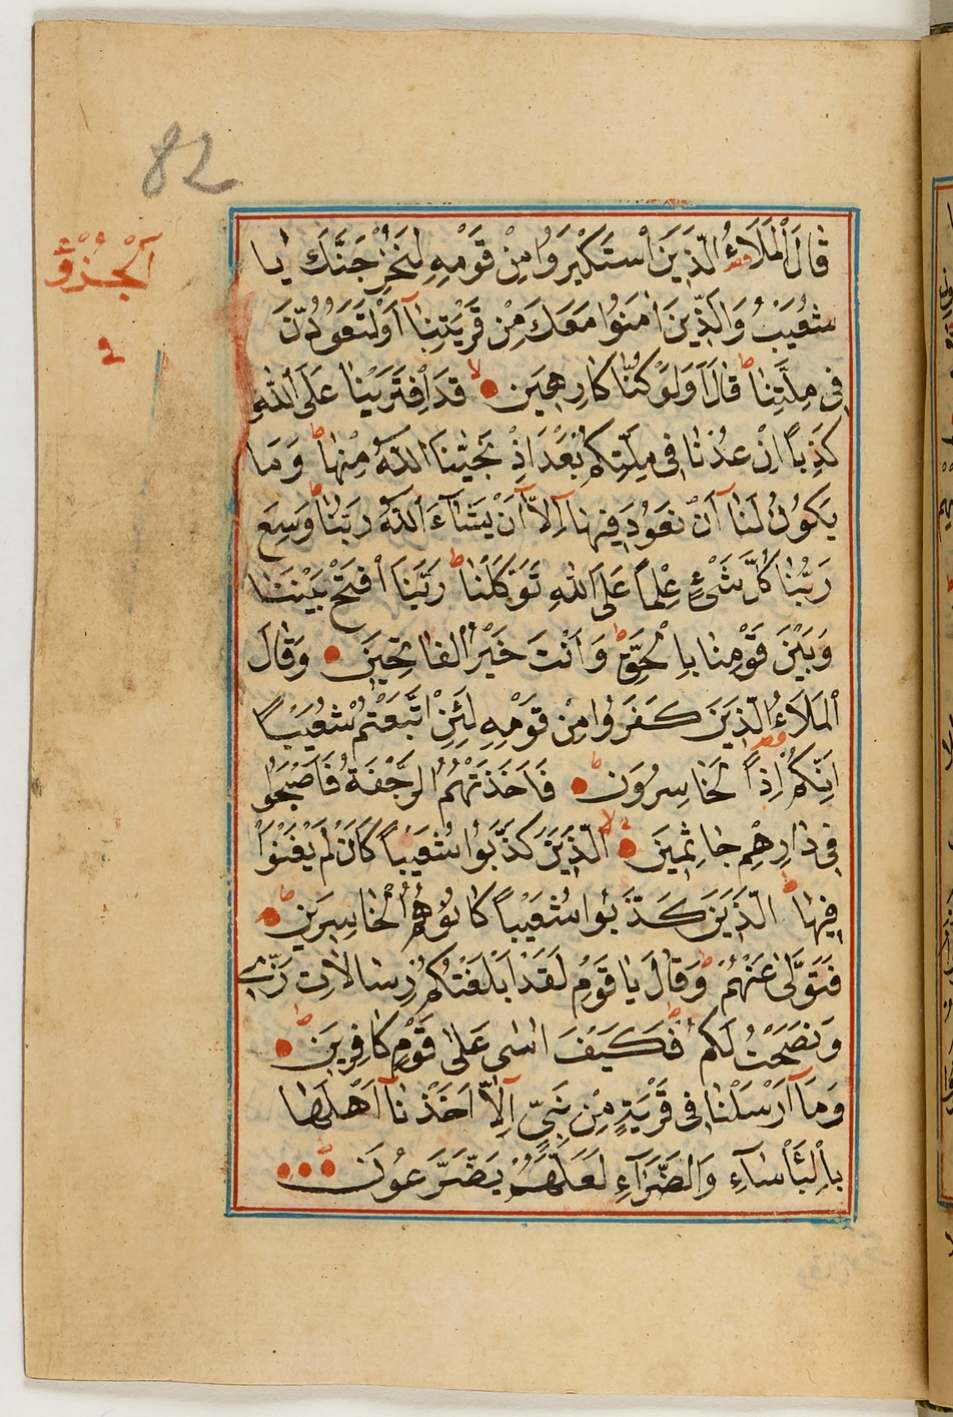 82
اَلْجُزْؤُ
٩
قَالَ الْمَلَاءُ الَّذِينَ اسْتَكْبَرُوا مِنْ قَوْمِهِ لَنُخْرِجَنَّكَ يَا
شُعَيْبُ وَالَّذِينَ اٰمَنُوا مَعَكَ مِنْ قَرْيَتِنَا اَوْلَتَعُودُنَّ
فِى مِلَّتِنَا ط قَالَ اَوَلَوْ كُنَّا كَارِهِينَ لا قَدِ افْتَرَيْنَا عَلَى اللّٰهِ
كَذِباً اِنْ عُدْنَا فِى مِلَّتِكُمْ بَعْدَ اِذْ نَجّٰينَا اللّٰهُ مِنْهَا ط وَمَا
يَكُونُ لَنَا اَنْ نَعُودَ فِيهَا اِلَّا اَنْ يَشَاءَ اللّٰهُ رَبُّنَا ط وَسِعَ
رَبُّنَا كُلَّ شَىْءٍ عِلْماً عَلَى اللّٰهِ تَوَكَّلْنَا ط رَبَّنَا افْتَحْ بَيْنَنَا
وَبَيْنَ قَوْمِنَا بِالْحَقِّ ط وَاَنْتَ خَيْرُ الْفَاتِحِينَ وَقَالَ
الْمَلَاءُ الَّذِينَ كَفَرُوا مِنْ قَوْمِهِ لَئِنِ اتَّبَعْتُمْ شُعَيْباً
اِنَّكُمْ اِذاً لَخَاسِرُونَ ط فَاَخَذَتْهُمُ الرَّجْفَةُ فَاَصْبَحُوا
فِى دَارِهِمْ جَاثِمِينَ لا الَّذِينَ كَذَّبُوا شُعَيْباً كَاَنْ لَمْ يَغْنَوْا
فِيهَا ط الَّذِينَ كَذَّبُوا شُعَيْباً كَانُوا هُمُ الْخَاسِرِينَ ط
فَتَوَلّٰى عَنْهُمْ وَقَالَ يَا قَوْمِ لَقَدْ اَبْلَغْتُكُمْ رِسَالَاتِ رَبّى
وَنَصَحْتُ لَكُمْ ط فَكَيْفَ اٰسٰى عَلٰى قَوْمٍ كَافِرِينَ ط
وَمَا اَرْسَلْنَا فِى قَرْيَةٍ مِنْ نَبِىٍّ اِلَّا اَخَذْنَا اَهْلَهَا
بِالْبَأْسَاءِ وَالضَّرَّاءِ لَعَلَّهُمْ يَضَّرَّعُونَ